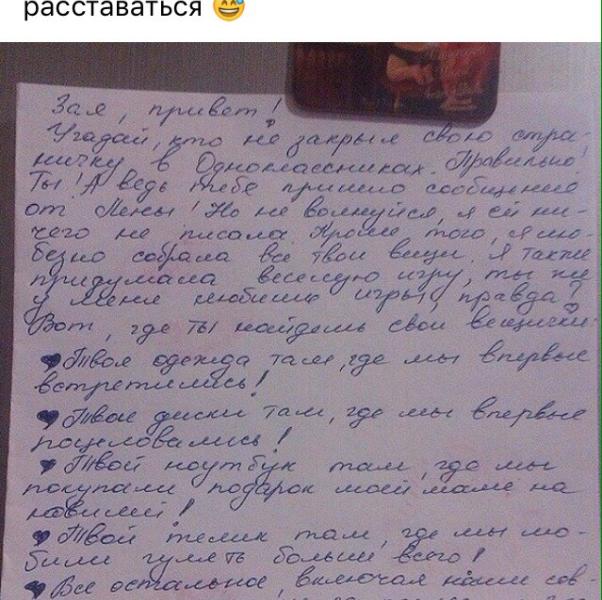 расставаться 😅
Зая, привет!
Угадай, кто не закрыл свою стра-
ничку в Одноклассниках. Правильно!
Ты! А ведь тебе пришло сообщение
от Лены! Но не волнуйся, я ей ни-
чего не писала. Кроме того, я лю-
безно собрала все твои вещи. Я также
придумала веселую игру, ты же
у меня любишь игры, правда?
Вот, где ты найдешь свои вещички:
♥ Твоя одежда там, где мы впервые
встретились!
♥ Твои диски там, где мы впервые
поцеловались!
♥ Твой ноутбук там, где мы
покупали подарок моей маме на
юбилей!
♥ Твой телик там, где мы лю-
били гулять больше всего!
♥ Все остальное, включая наши сов-